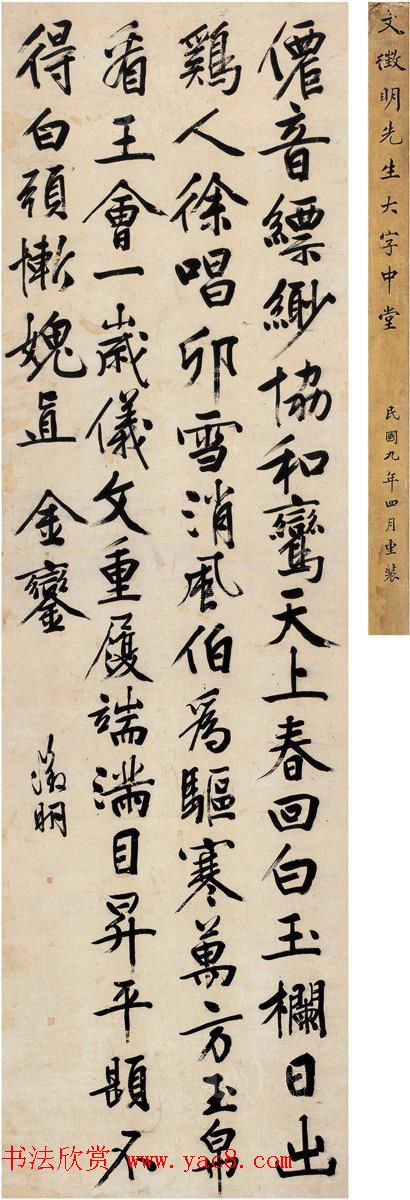 文徵明先生大字中堂
民國九年四月重裝
僊音縹緲協和鸞天上春回白玉欄日出
鷄人徐唱卯雪消風伯爲驅寒萬方玉帛
看王會一歲儀文重履端滿目昇平題不
得白頭慚媿直 金鑾
徵明
书法欣赏 www.yac8.com